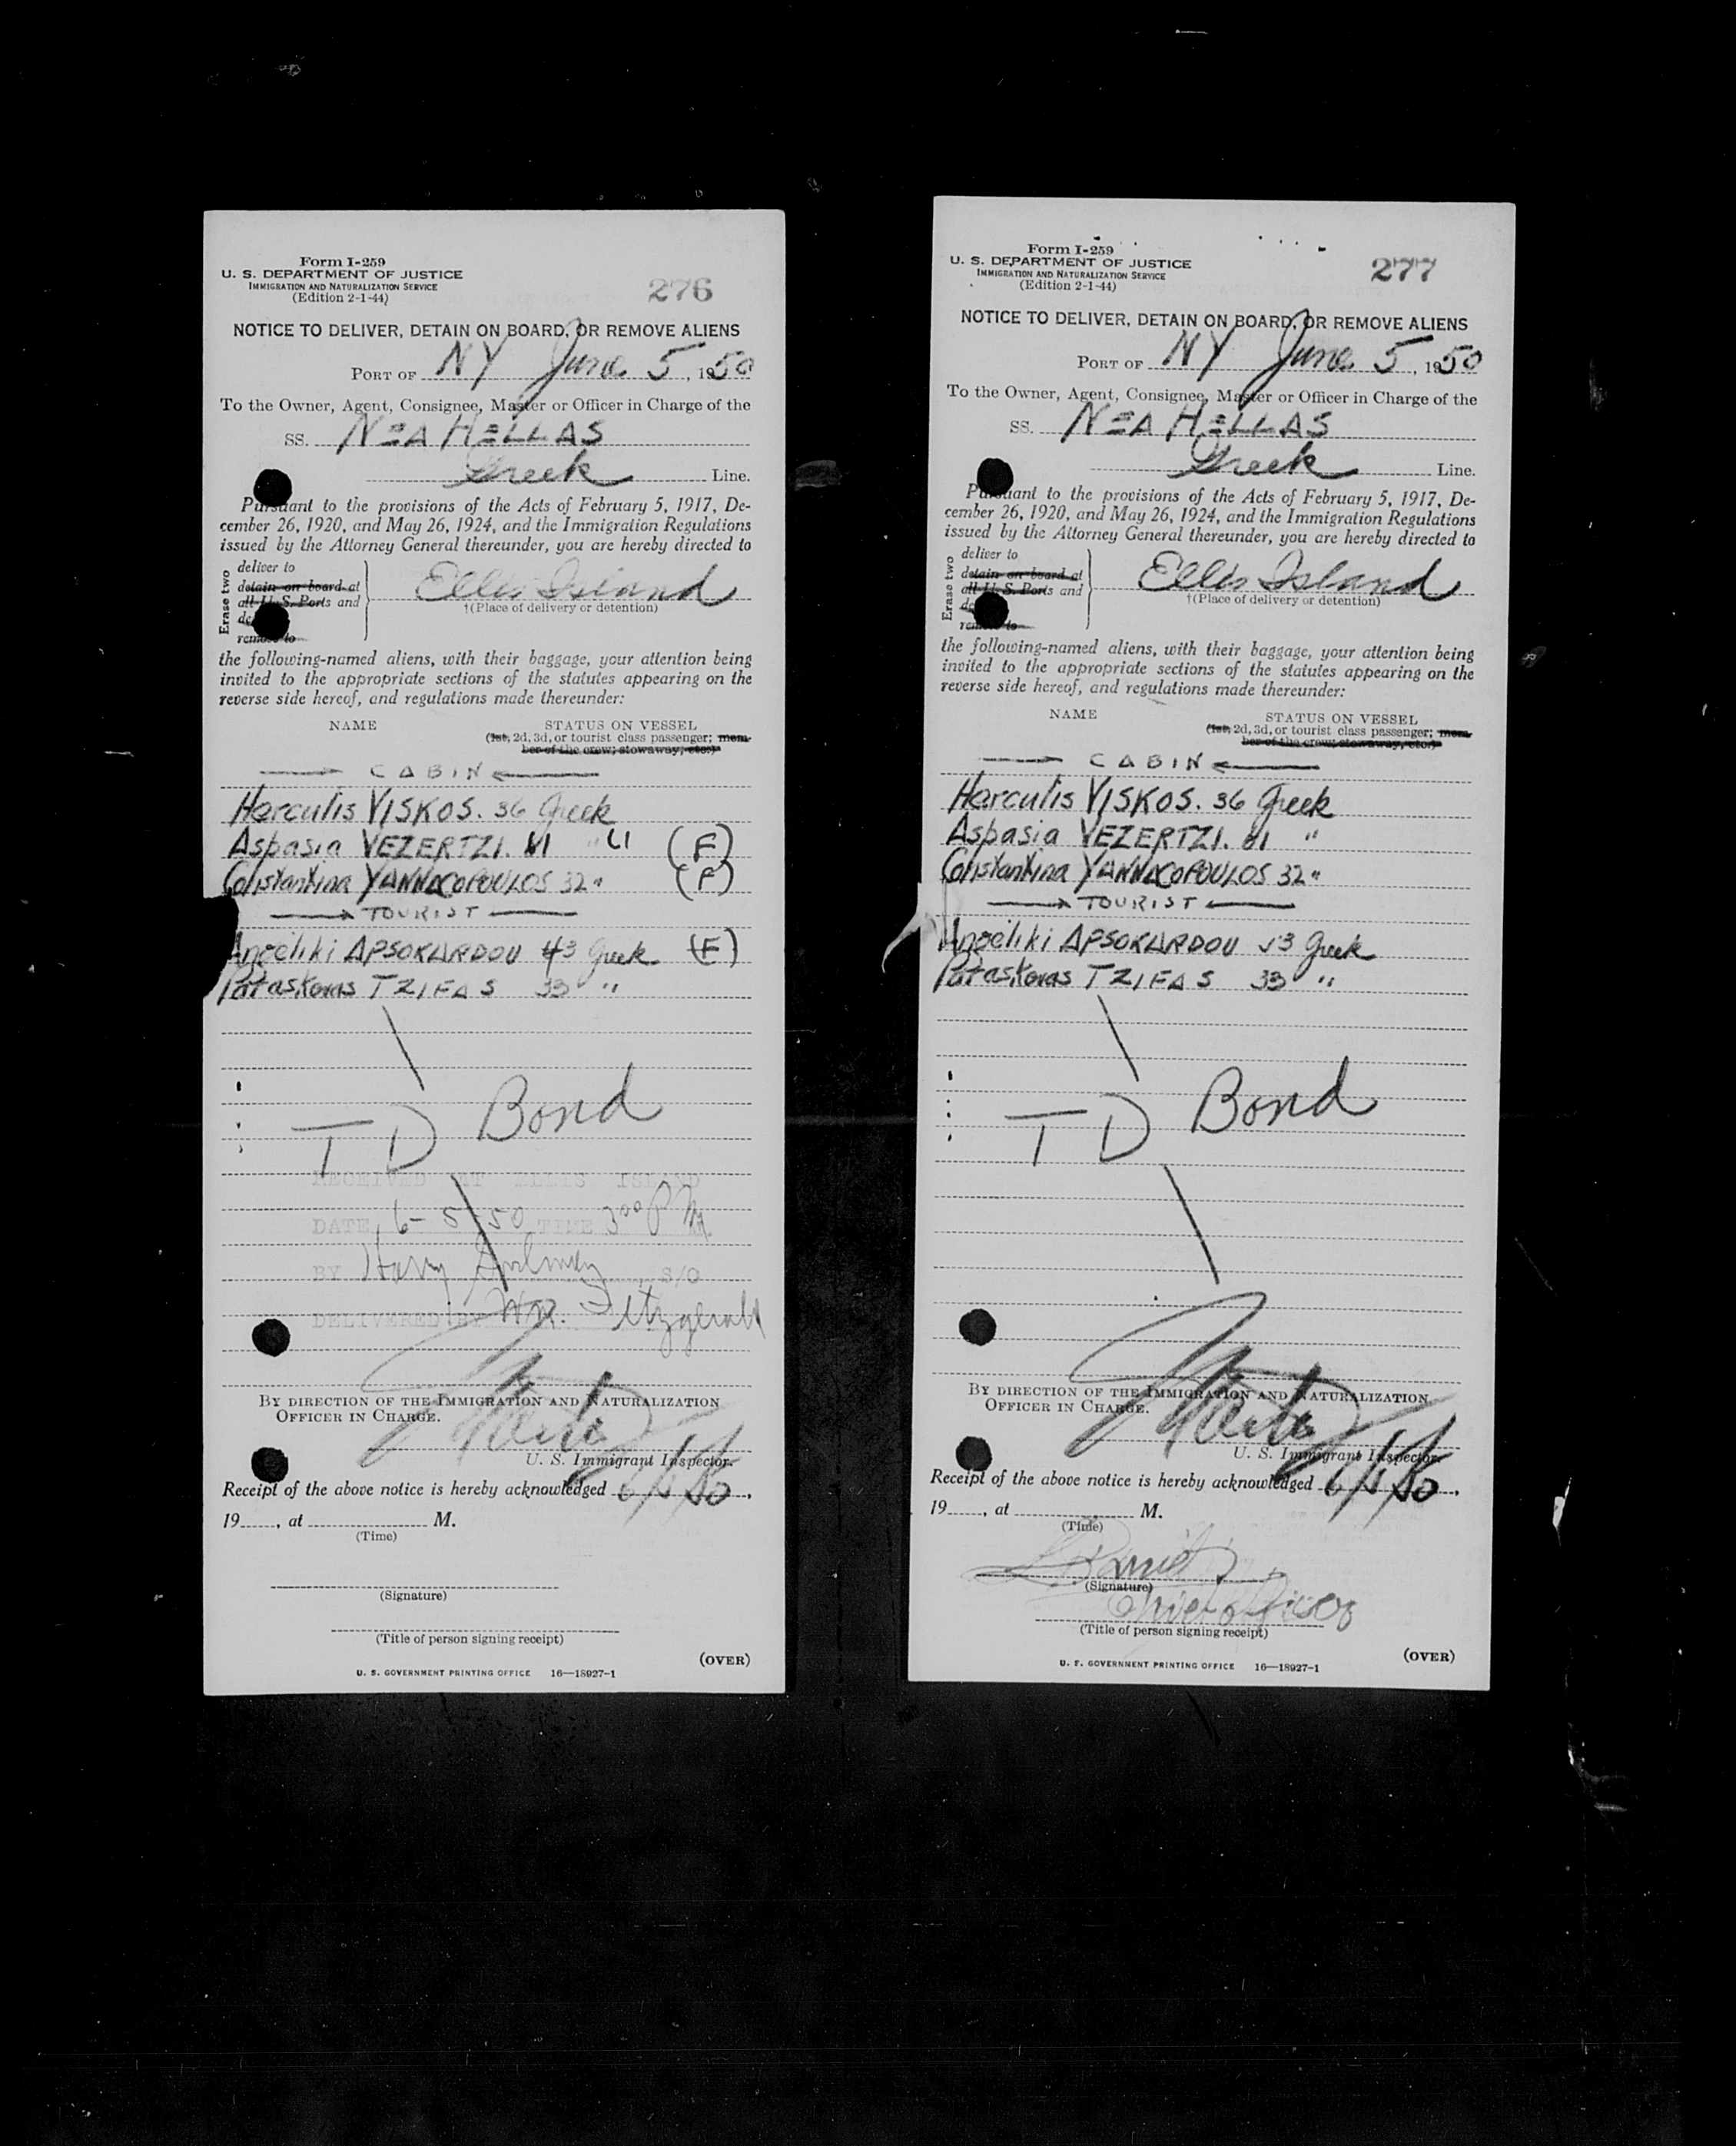 Form I-259
U. S. DEPARTMENT OF JUSTICE
IMMIGRATION AND NATURALIZATION SERVICE
(Edition 2-1-44)
276
NOTICE TO DELIVER, DETAIN ON BOARD, OR REMOVE ALIENS
PORT OF NY June 5, 1950
To the Owner, Agent, Consignee, Master or Officer in Charge of the
SS. NEA HELLAS
Greek Line.
Pursuant to the provisions of the Acts of February 5, 1917, De-
cember 26, 1920, and May 26, 1924, and the Immigration Regulations
issued by the Attorney General thereunder, you are hereby directed to
Erase two
deliver to
detain on board at
all U. S. Ports and
remove to
Ellis Island
†(Place of delivery or detention)
the following-named aliens, with their baggage, your attention being
invited to the appropriate sections of the statutes appearing on the
reverse side hereof, and regulations made thereunder:
NAME STATUS ON VESSEL
(1st, 2d, 3d, or tourist class passenger; mem-
ber of the crew; stowaway, etc.)
CABIN
Herculis VISKOS. 36 Greek
Aspasia VEZERTZI. 61 " (F)
Constantina YANNACOPOULOS 32 " (F)
TOURIST
Angeliki APSOKARDOU 43 Greek (F)
Paraskevas TZIFAS 33 "
TD Bond
RECEIVED AT ELLIS ISLAND
DATE 6-5-50 TIME 3 00 P M.
BY Harry S/O
DELIVERED BY Wm. Fitzgerald
BY DIRECTION OF THE IMMIGRATION AND NATURALIZATION
OFFICER IN CHARGE.
U. S. Immigrant Inspector.
Receipt of the above notice is hereby acknowledged
19 , at M.
(Time)
(Signature)
(Title of person signing receipt)
(OVER)
U. S. GOVERNMENT PRINTING OFFICE 16—18927-1
Form I-259
U. S. DEPARTMENT OF JUSTICE
IMMIGRATION AND NATURALIZATION SERVICE
(Edition 2-1-44)
277
NOTICE TO DELIVER, DETAIN ON BOARD, OR REMOVE ALIENS
PORT OF NY June 5, 1950
To the Owner, Agent, Consignee, Master or Officer in Charge of the
SS. NEA HELLAS
Greek Line.
Pursuant to the provisions of the Acts of February 5, 1917, De-
cember 26, 1920, and May 26, 1924, and the Immigration Regulations
issued by the Attorney General thereunder, you are hereby directed to
Erase two
deliver to
detain on board at
all U. S. Ports and
remove to
Ellis Island
†(Place of delivery or detention)
the following-named aliens, with their baggage, your attention being
invited to the appropriate sections of the statutes appearing on the
reverse side hereof, and regulations made thereunder:
NAME STATUS ON VESSEL
(1st, 2d, 3d, or tourist class passenger; mem-
ber of the crew; stowaway, etc.)
CABIN
Herculis VISKOS. 36 Greek
Aspasia VEZERTZI. 61 "
Constantina YANNACOPOULOS 32 "
TOURIST
Angeliki APSOKARDOU Greek
Paraskevas TZIFAS 33 "
TD Bond
BY DIRECTION OF THE IMMIGRATION AND NATURALIZATION
OFFICER IN CHARGE.
U. S. Immigrant Inspector.
Receipt of the above notice is hereby acknowledged
19 , at M.
(Time)
(Signature)
Chief Officer
(Title of person signing receipt)
(OVER)
U. S. GOVERNMENT PRINTING OFFICE 16—18927-1